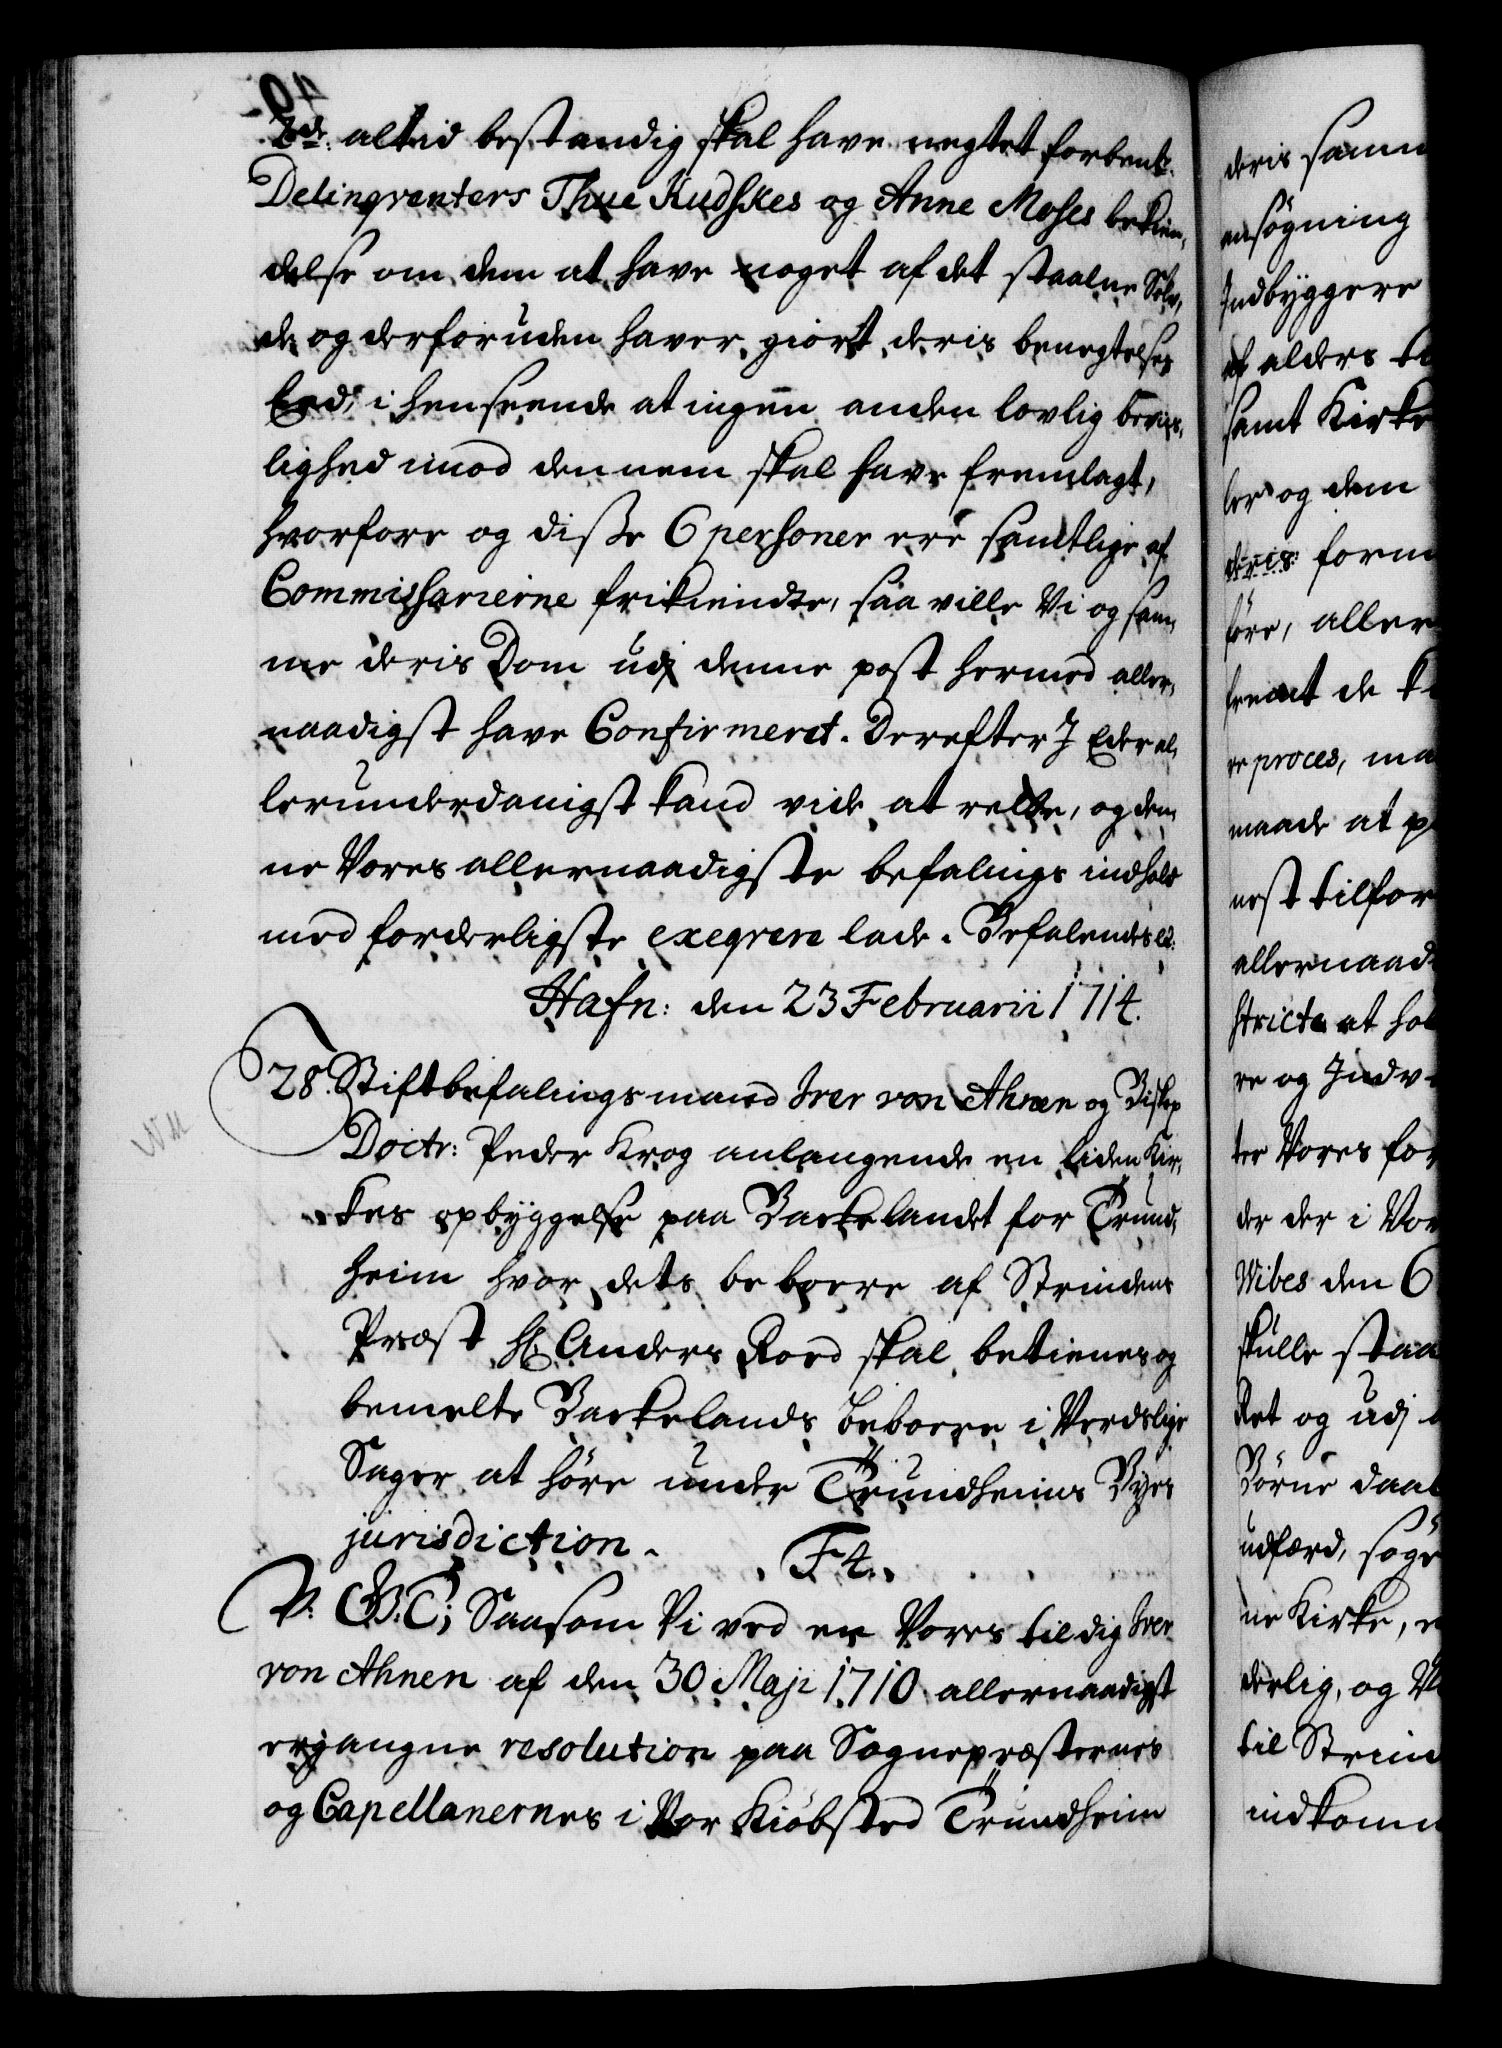 altid bestandig skal have negtet forbente
Delinqventers Thue Kudskes og Anne Moses bekien,
delse om dem at have noget af det staalne Sølv,
de og derforuden haver giort deris benegtelses
Eed, i henseende at ingen anden lovlig beviis,
lighed imod dennem skal have fremlagt,
hvorfore og disse 6 personer ere samtlige af
Commissarierne frikiendte, saa ville Vi og sam,
me deris Dom udj denne post hermed aller,
naadigst have Confirmeret. Derefter I Eder al,
lerunderdanigst kand vide at rette, og den,
ne Vores allernaadigste befalings indhold
med forderligste exeqvere lade. Befalendes ed:
Hafn: den 23 Februarii 1714.
28. Stiftbefalingsmand Iver von Ahnen og Bisk{op}
Doctr: Peder Krog anlangende en liden Kir,
kes opbyggelse paa Backelandet for Trund,
heim hvor dets beboere af Strindens
Præst Hr. Anders Roed skal betienes og
bemelte Backelands beboere i Verdslige
Sager at høre under Trundheims Byes
jurisdiction.
F 4.
V: G: T; Saasom Vi ved en Vores til dig Iver
von Ahnen af den 30 Maji 1710 allernaadigst
ergangne resolution paa Sognepræsternes
og Capellanernes i Vor Kiøbsted Trundheim
deris samm
ansøgning
Indbyggere
af alders ti
samt Kirke
ler og dem
deris form
føre, aller
fremt de k
re proces, ma
maade at p
nest tilfor
allernaad
stricte at hol
re og Indv
ter Vores for
der der i Vor
Wibes den 6
skulle staa
Ret og udj
Børne daab
udfærd, søge
ne Kirke,
derlig, og
til Strind
indkomm